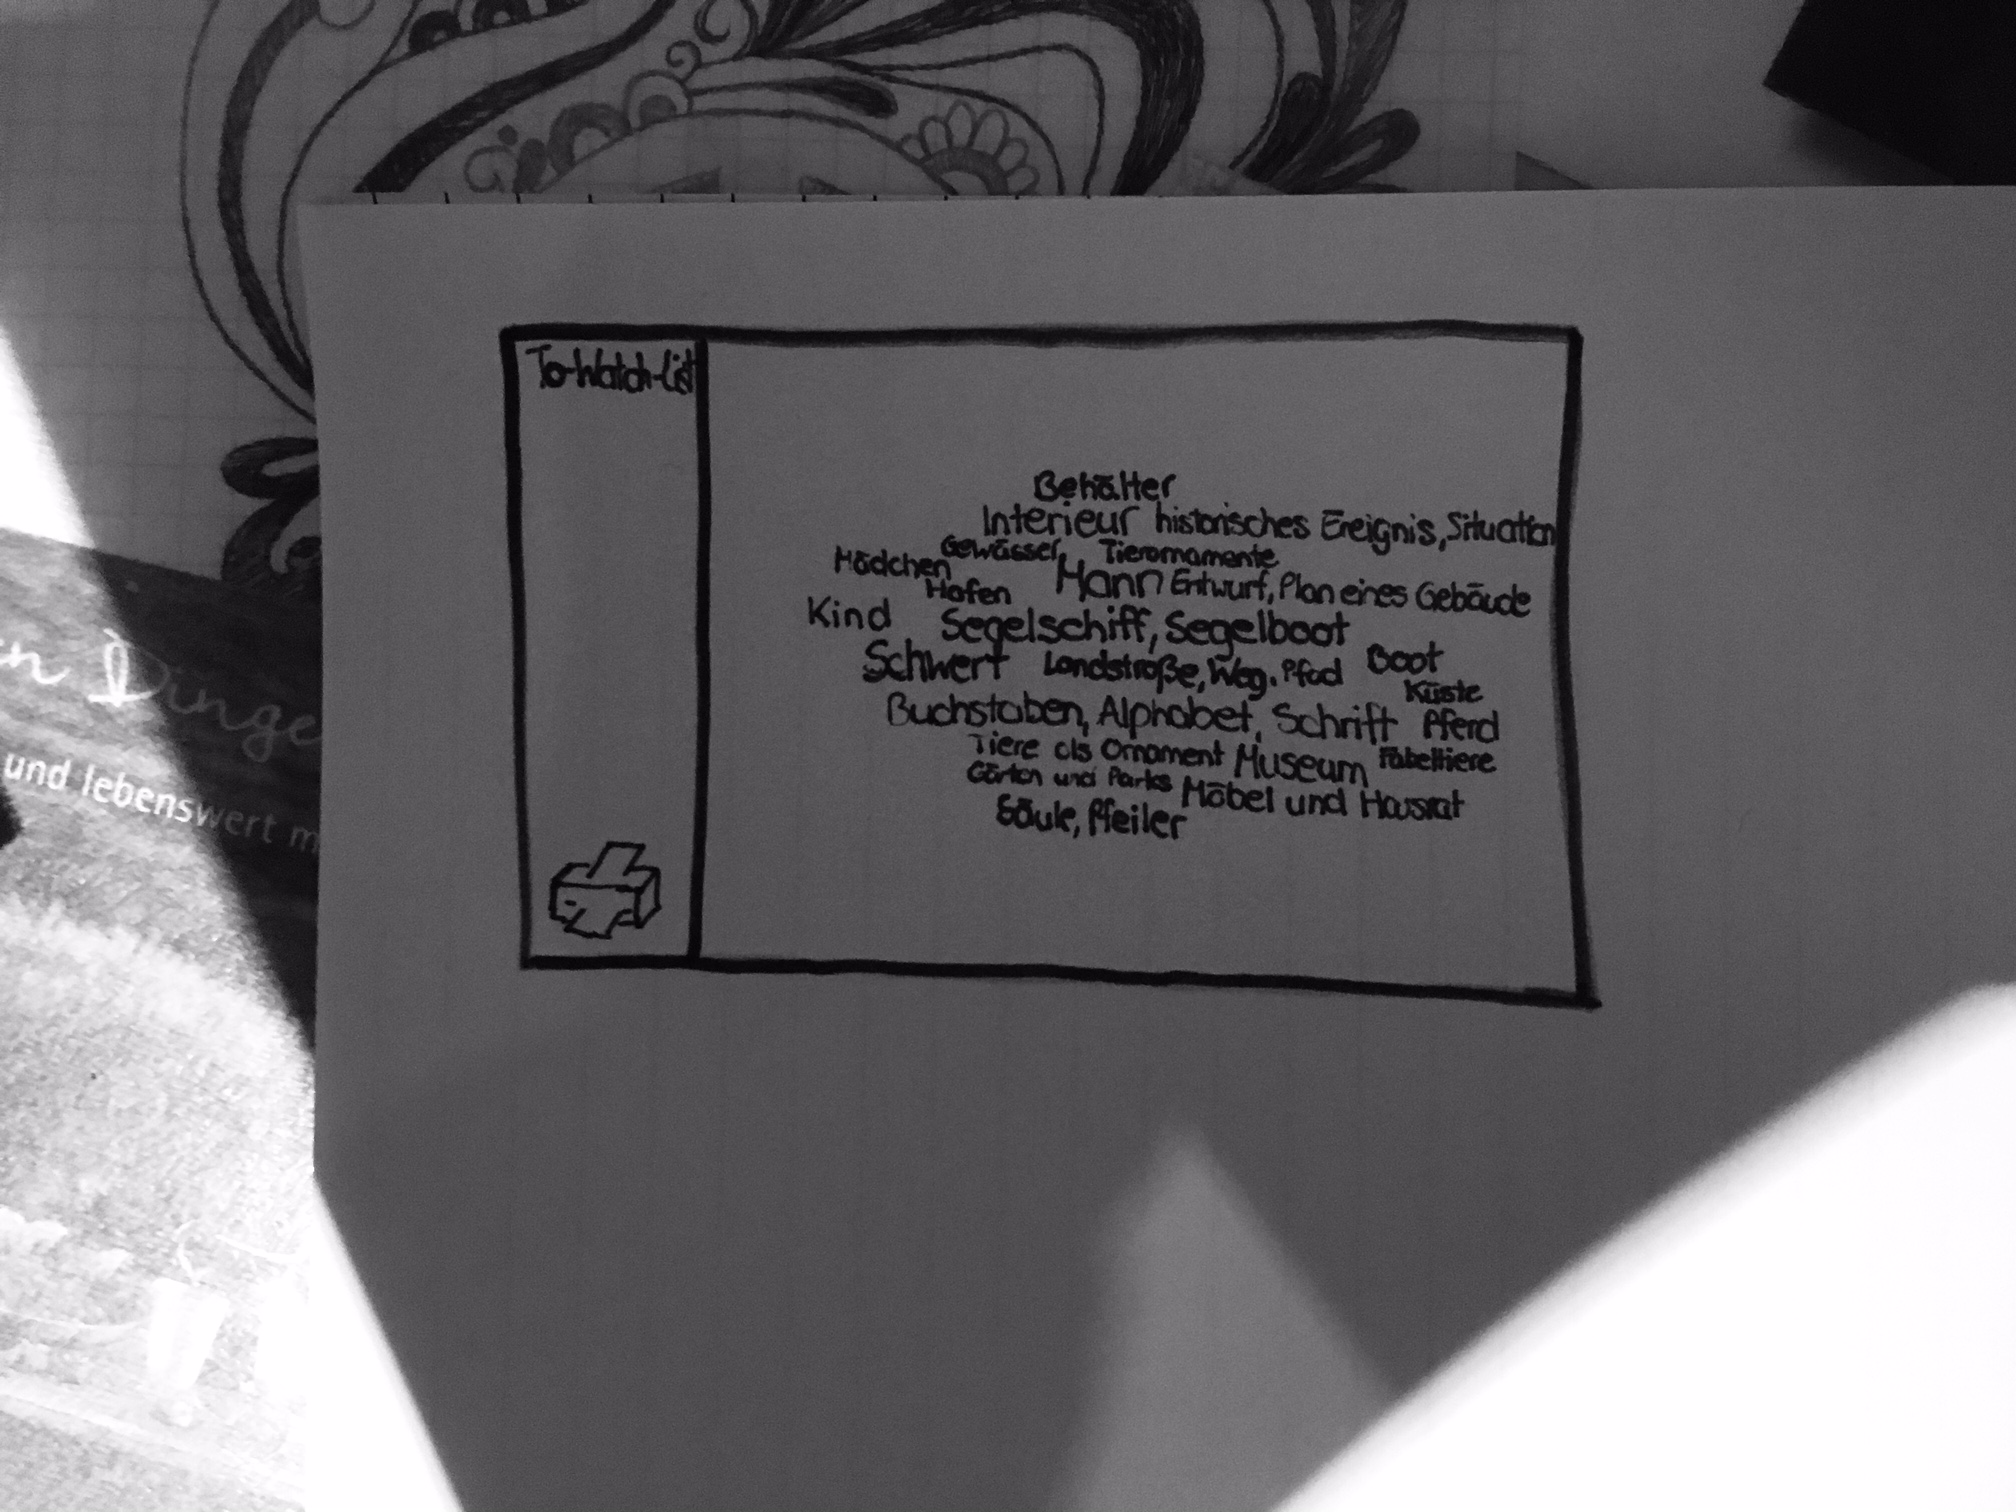 To-Watch-List
Behälter
Interieur historisches Ereignis, Situation
Gewässer Tierornamente
Mädchen Mann Entwurf, Plan eines Gebäude
Hafen
Kind Segelschiff, Segelboot
Schwert Landstraße, Weg, Pfad Boot
Küste
Buchstaben, Alphabet, Schrift Pferd
Tiere als Ornament Museum Fabeltiere
Gärten und Parks Möbel und Hausrat
Säule, Pfeiler
en Dinge
und lebenswert m